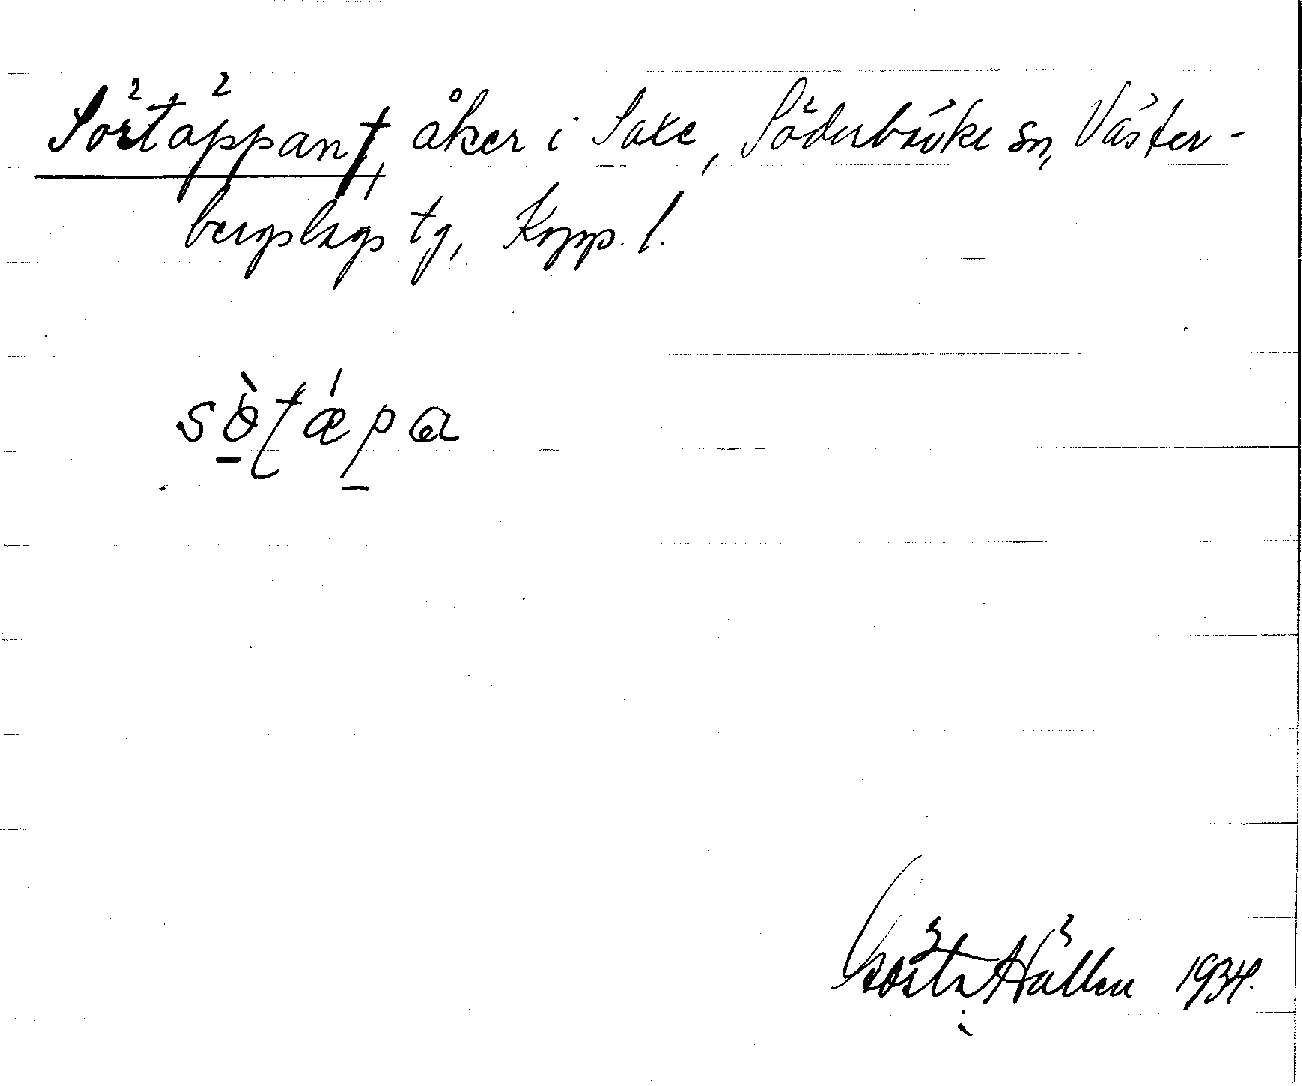 Sörtäppan†, åker i Saxe, Söderbärke sn, Väster-
bergslags tg, Kopp. l.
sò̱ʈǽp̱a
Gösta Hällen 1934.